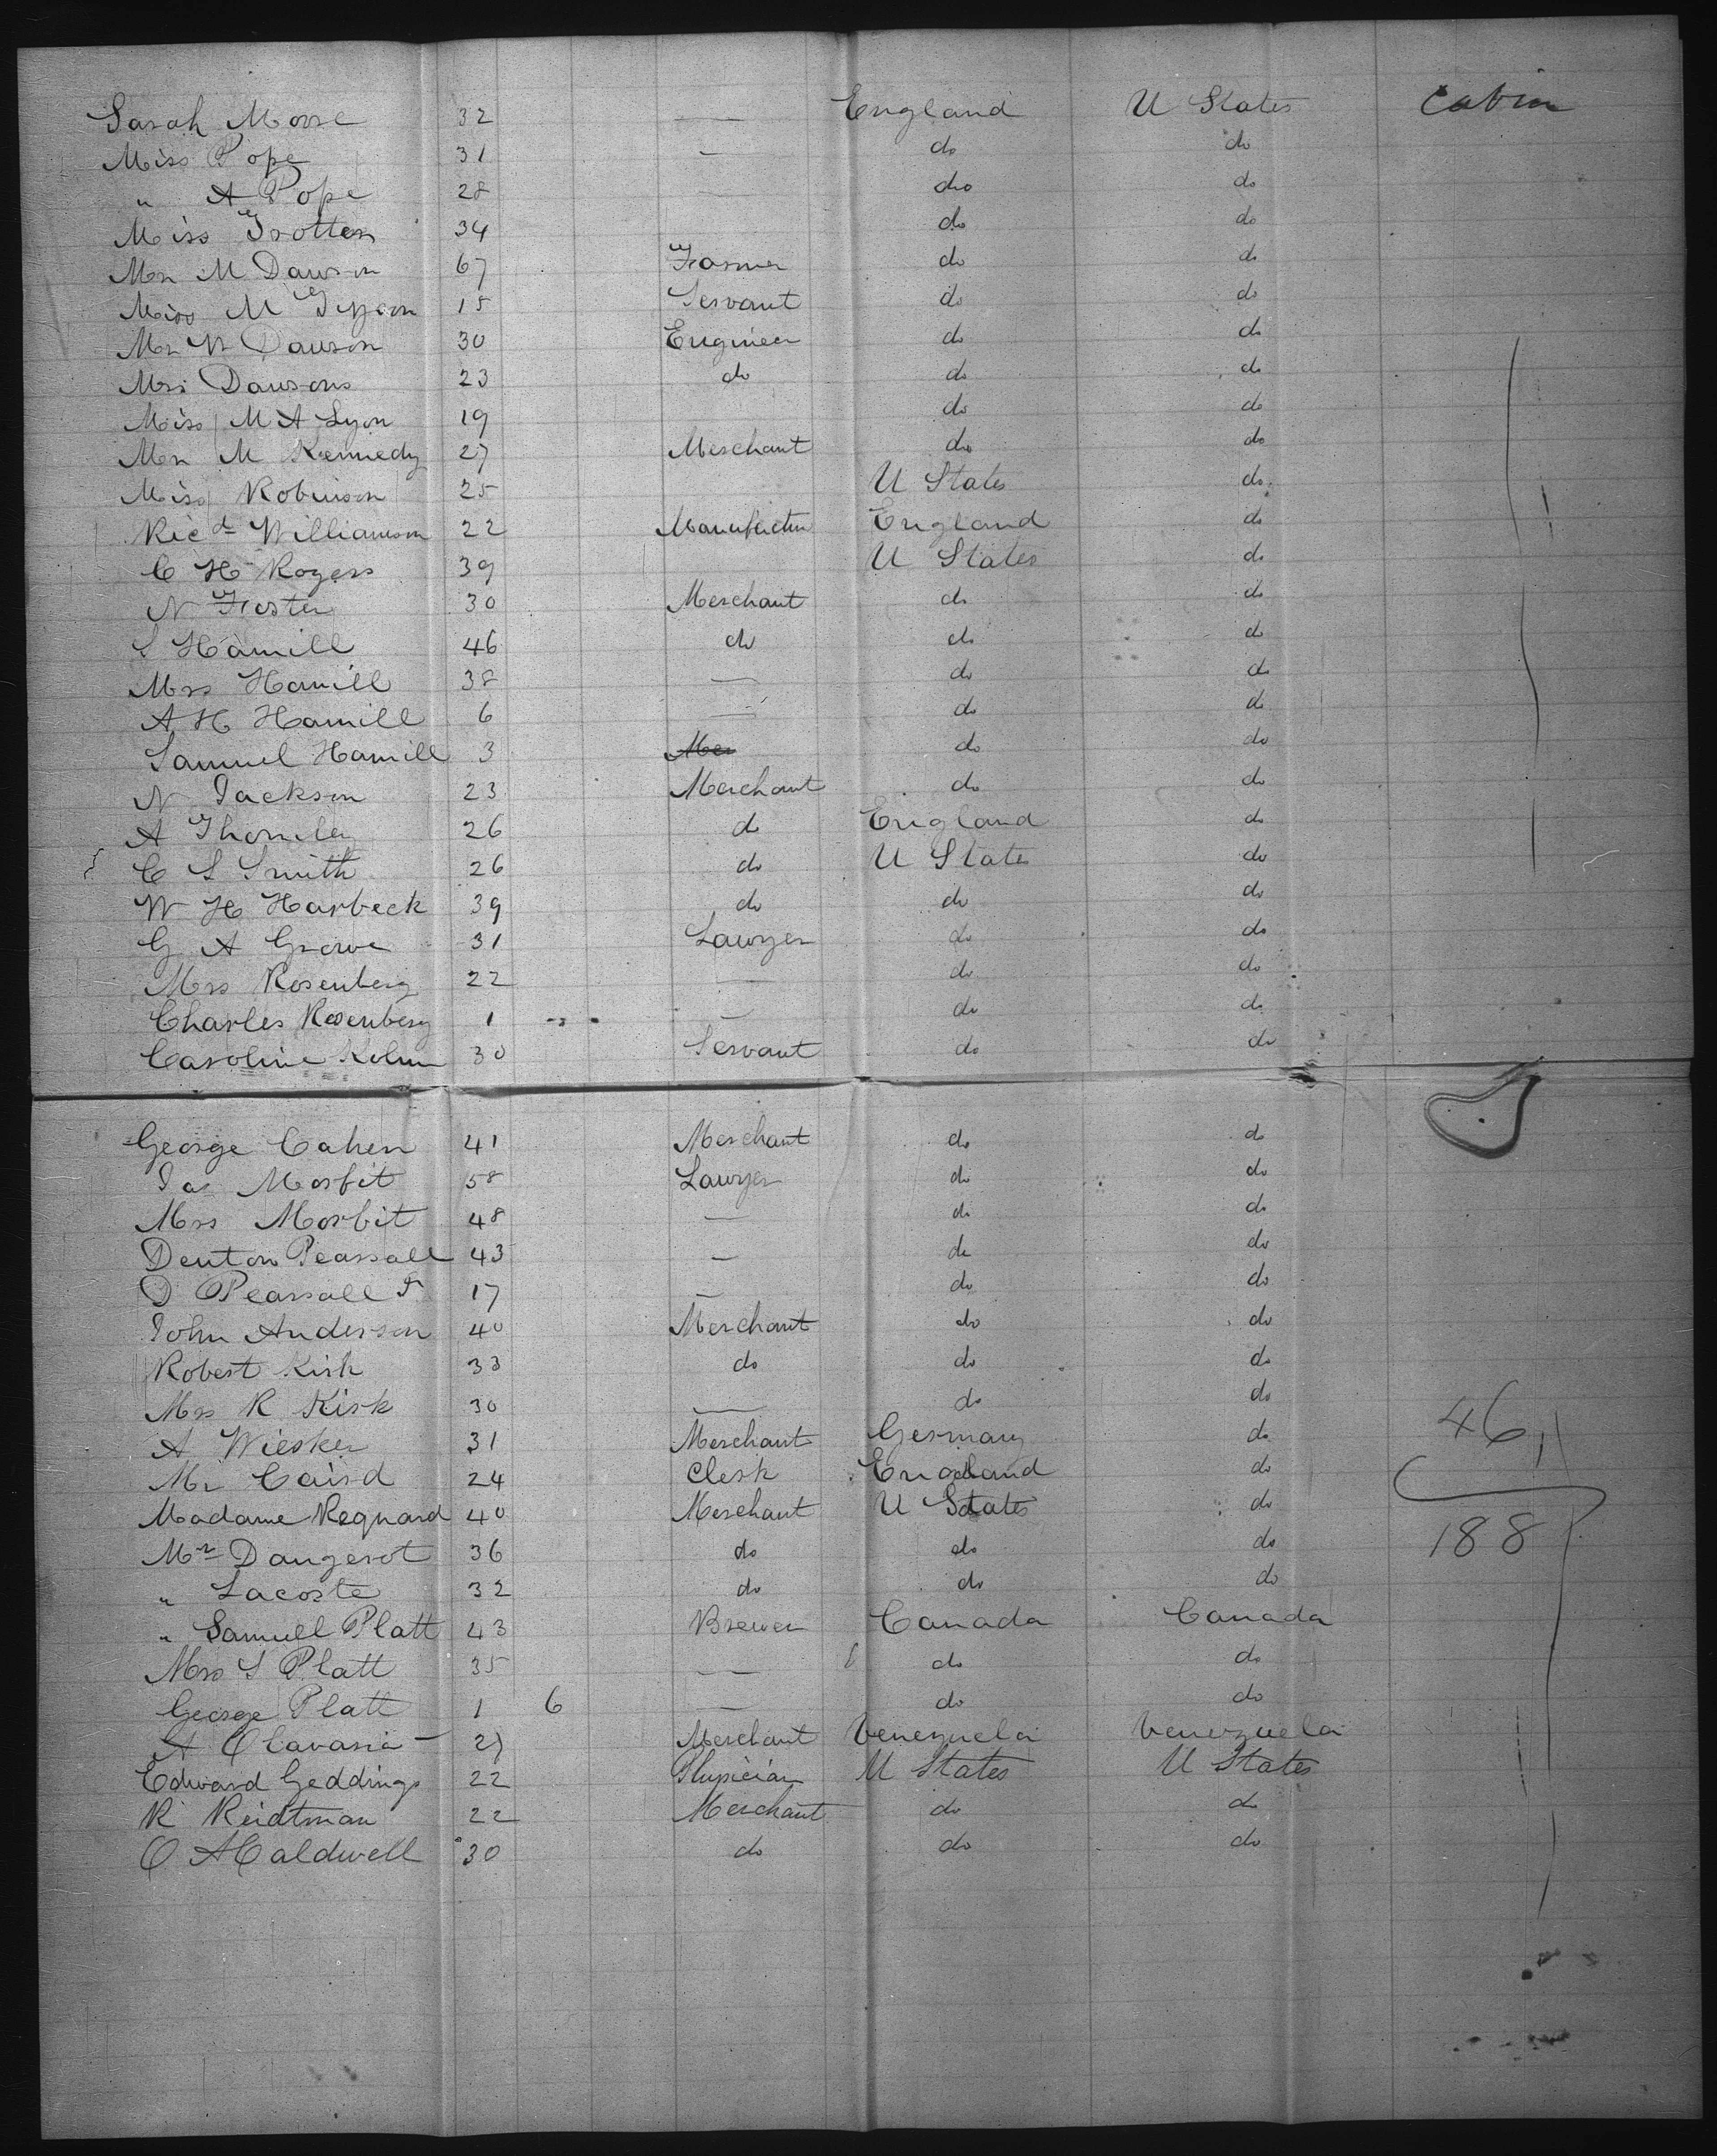 Sarah Morse 32 — England U States Cabin
Miss Pope 31 — do do
" A Pope 28 — do do
Miss Trotten 34 do do
Mr M Dawson 67 Farmer do do
Miss M 18 Servant do do
Mr W Dawson 30 Engineer do do
Mrs Dawson 23 do do do
Miss M A Lyon 19 do do
Mr M Kennedy 27 Merchant do do
Miss Robinson 25 U States do
Ricd Williamson 22 Manufactur England do
C H Rogers 39 U States do
N Foster 30 Merchant do do
S Hamill 46 do do do
Mrs Hamill 38 — do do
A H Hamill 6 — do do
Samuel Hamill 3 Mer do do
N Jackson 23 Merchant do do
A Thornley 26 do England do
C S Smith 26 do U State do
W H Harbeck 39 do do do
G A Grove 31 Lawyer do do
Mrs Rosenberg 22 — do do
Charles Rosenberg 1 — do do
Caroline 30 Servant do do
George Cahen 41 Merchant do do
Jas Morfit 58 Lawyer do do
Mrs Morfit 48 — do do
Denton Pearsall 43 — do do
D Pearsall Jr 17 — do do
John Anderson 40 Merchant do do
Robert Kirk 33 do do do
Mrs R Kirk 30 — do do
A Wiesker 31 Merchant Germany do 46
Mr Caird 24 Clerk England do
Madame Regnard 40 Merchant U States do
Mr Dangerot 36 do do do 188
" Lacoste 32 do do do
" Samuel Platt 43 Brewer Canada Canada
Mrs S Platt 35 — do do
George Platt 1 6 — do do
A Olavaria 27 Merchant Venezuela Venezuela
Edward Geddings 22 Physician U States U States
R Reidtman 22 Merchant do do
O A Caldwell 30 do do do